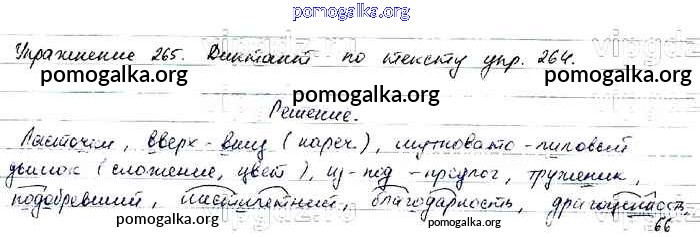 pomogalka.org
Упражнение 265. Диктант по тексту упр. 264.
vipgdz
pomogalka.org pomogalka.org pomogalka.org
Решение.
Ласточки, вверх-вниз (нареч.), мутновато-лиловый
дымок (сложение, цвет), из-под - предлог, труженик,
подобревший, пятилетний, благодарность, драгоценность.
pomogalka.org pomogalka.org pomogalka.org
66